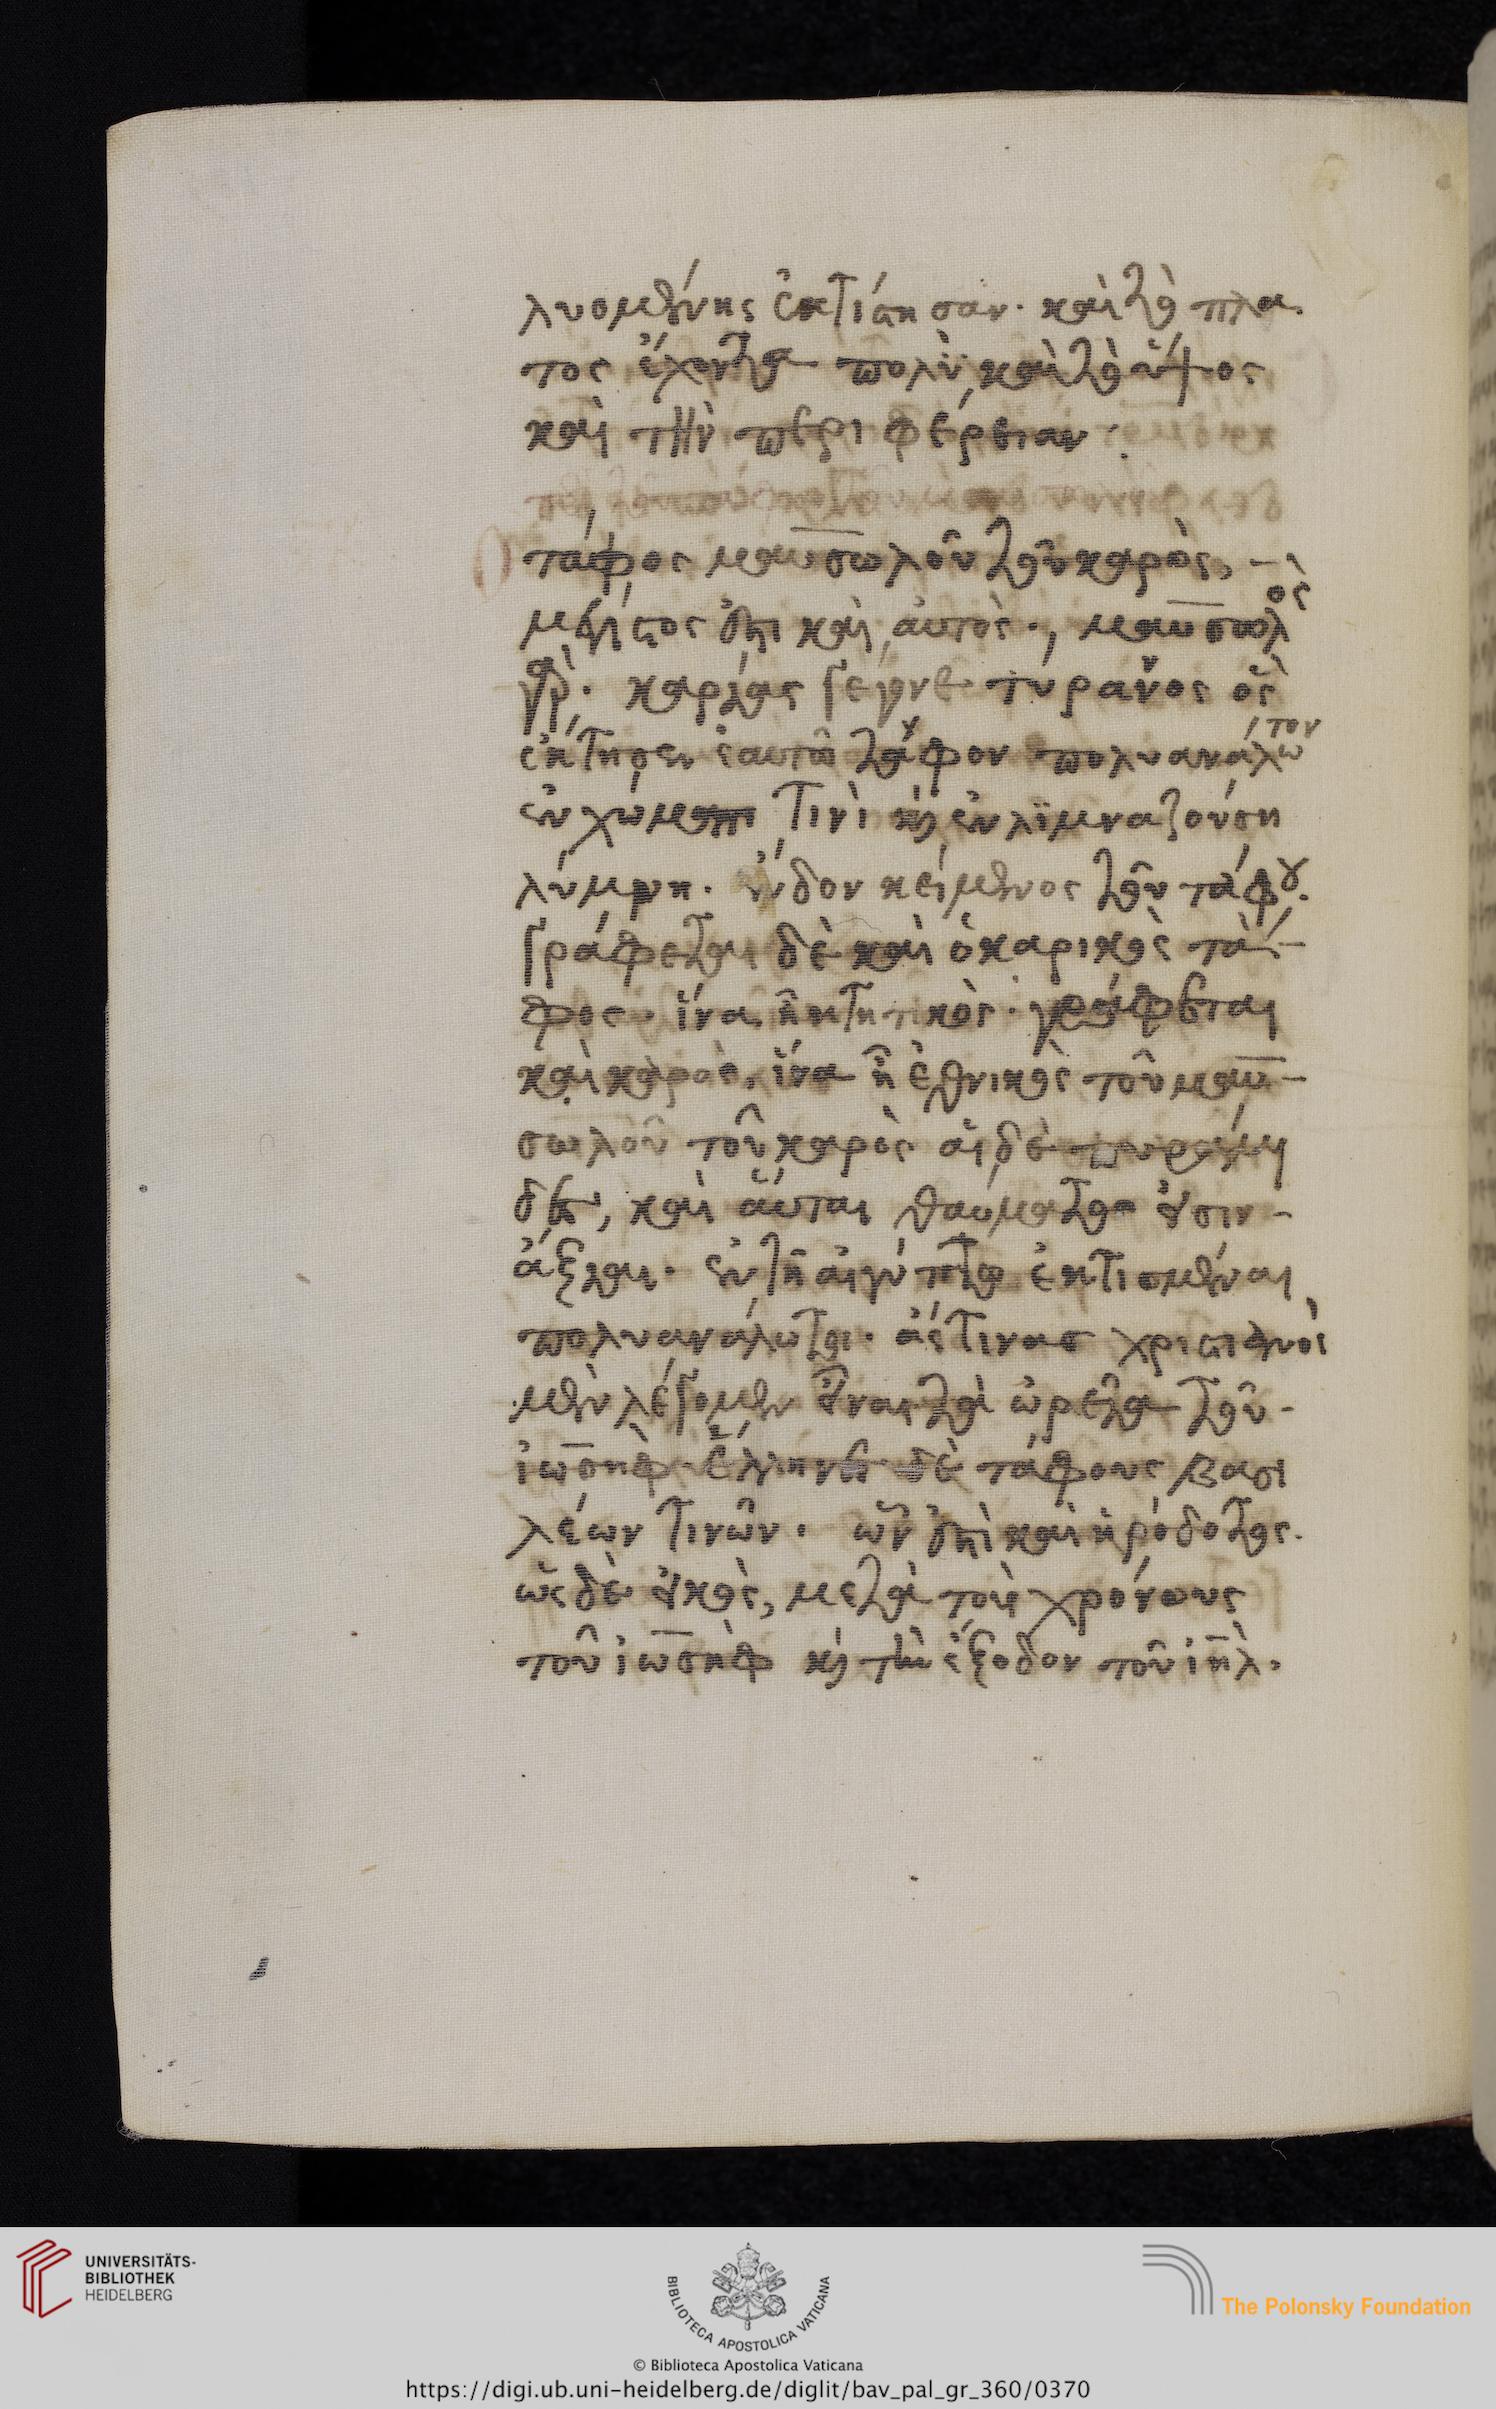 λυομένης ἐκτίσησαν. καὶ τὸ πλα
τος ἔχοντα πολὺ καὶ τὸ ὕψος
καὶ τὴν περιφέρειαν:
τάφος μαυσωλοῦ τοῦ καρὸς, -
μέγιστος ἐστι καὶ αὐτὸς., μαυσωλὸς
γὰρ. καρίας γέγονε τύραννος ὃς
ἔκτησεν ἑαυτῶ τάφον πολυανάλωτον
ἐν χώματι τινὶ κὶ ἐν λϊμναζούση
λύμνη. ἔνδον κείμενος τοῦ τάφου.
γράφεται δὲ καὶ ὁ καρικὸς τά-
φος. ἵνα ἦ κτητικὸς. γράφεται
καὶ καρὸς, ἵνα ἦ ἐθνικὸς τοῦ μαυ-
σωλοῦ τοῦ καρὸς αἱ δὲ πυραμί
δες, καὶ αὗται θαύματος εἰσιν -
ἄξιαι. ἐν τῆ αἰγύπτω ἐκτισμέναι
πολυανάλωτοι. ἅς τινας χριστιανοὶ
μὲν λέγομεν εἶναι τὰ ὡρεῖα τοῦ -
ἰωσὴφ ἕλληνες δὲ τάφους βασι
λέων τινῶν. ὧν ἐστὶ καὶ ἡρόδοτος.
ὡς δὲ εἰκὸς, μετὰ τοὺς χρόνους
τοῦ ἰωσὴφ κὶ τὴν ἔξοδον τοῦ ἰηλ.
UNIVERSITÄTS-
BIBLIOTHEK
HEIDELBERG
BIBLIOTECA APOSTOLICA VATICANA
The Polonsky Foundation
© Biblioteca Apostolica Vaticana
https://digi.ub.uni-heidelberg.de/diglit/bav_pal_gr_360/0370